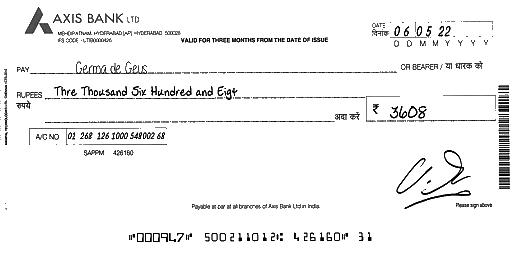 AXIS BANK LTD
MEHDIPATNAM, HYDERABAD [AP] HYDERABAD 500028
IFS CODE - UTIB0000426
VALID FOR THREE MONTHS FROM THE DATE OF ISSUE
DATE
दिनांक 06 05 22
D D M M Y Y Y Y
PAY Germa de Geus OR BEARER / या धारक को
RUPEES Thre Thousand Six Hundred and Eigt
रुपये
अदा करें ₹ 3608
A/C NO 01 268 126 1000 548002 68
SAPPM 426160
Payable at par at all branches of Axis Bank Ltd in India.
Please sign above
⑈000947⑈ 500211012⑆ 426160⑈ 31